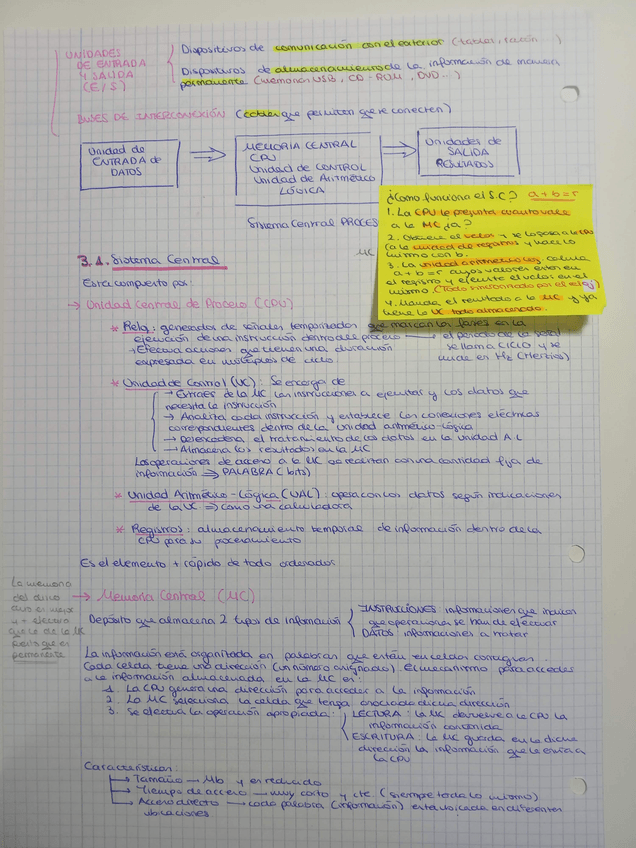 UNIDADES
DE ENTRADA
Y SALIDA
(E/S)
Dispositivos de comunicación con el exterior (teclas, ratón ...)
Dispositivos de almacenamiento de la información de manera
permanente (memorias USB, CD-ROM, DVD...)
BUSES DE INTERCONEXIÓN (cables que permiten que se conecten)
Unidad de
ENTRADA de
DATOS
MEMORIA CENTRAL
CPU
Unidad de CONTROL
Unidad de Aritmético
LÓGICA
Unidades de
SALIDA
RESULTADOS
Sistema Central PROCES
MC
¿Cómo funciona el S.C? a + b = r
1. La CPU le pregunta cuanto vale
a la MC ¿a?
2. Obtiene el valor y se lo pasa a la CPU
(a la unidad de registros y hace lo
mismo con b.
3. La unidad aritmético log. calcula
a + b = r cuyos valores están en
el registro y ejecuta el valor en el
mismo. (Todo sincronizado por el reloj)
4. Manda el resultado a la MC y ya
tiene la UC todo almacenado.
3.1. Sistema Central
Está compuesto por:
→ Unidad Central de Proceso (CPU)
* Reloj: generador de señales temporizador que marcan las fases en la
ejecución de una instrucción dentro del proceso → el periodo de la señal
se llama CICLO y se
mide en Hz (Hertzios)
+ Efectua acciones que tienen una duración
expresada en múltiplos de ciclo
* Unidad de Control (UC): Se encarga de
→ Extraer de la MC las instrucciones a ejecutar y los datos que
necesita la instrucción
→ Analiza cada instrucción y establece las conexiones eléctricas
correspondientes dentro de la unidad aritmético-lógica
→ Desencadena el tratamiento de los datos en la unidad A.L
→ Almacena los resultados en la MC
Las operaciones de acceso a la MC se realizan con una cantidad fija de
información ⇒ PALABRA (bits)
* Unidad Aritmético-Lógica (UAL): opera con los datos según indicaciones
de la UC ⇒ como una calculadora
* Registros: almacenamiento temporal de información dentro de la
CPU para su procesamiento
Es el elemento + rápido de todo ordenador
La memoria
del disco
duro es mejor
y + efectivo
que la de la MC
porque es
permanente
→ Memoria Central (MC)
Depósito que almacena 2 tipos de información
INSTRUCCIONES informaciones que indican
que operaciones se han de efectuar
DATOS informaciones a tratar
La información está organizada en palabras que están en celdas contiguas.
Cada celda tiene una dirección (un número asignado). El mecanismo para acceder
a la información almacenada en la MC es:
1. La CPU genera una dirección para acceder a la información
2. La MC selecciona la celda que tenga asociada dicha dirección
3. Se efectúa la operación apropiada:
LECTURA: la MC devuelve a la CPU la
información contenida
ESCRITURA: la MC guarda en la dicha
dirección la información que le envía a
la CPU
Características:
→ Tamaño → Mb y es reducido
→ Tiempo de acceso → muy corto y cte. (siempre tarda lo mismo)
→ Acceso directo → cada palabra (información) está ubicada en diferentes
ubicaciones